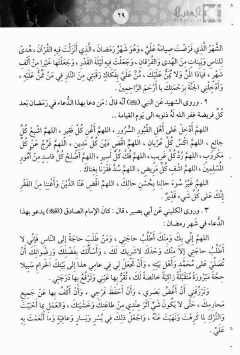 ٢٩
الشَّهْرُ الَّذِي فَرَضْتَ صِيامَهُ عَلَيَّ ، وَهُوَ شَهْرُ رَمَضانَ، الَّذِي أَنْزَلْتَ فِيهِ الْقُرْآنَ، هُدىً
لِلناسِ وَبَيِّناتٍ مِنَ الْهُدى وَالْفُرْقانِ، وَجَعَلْتَ فِيهِ لَيْلَةَ الْقَدْرِ، وَجَعَلْتَها خَيْراً مِنْ أَلْفِ
شَهْرٍ ، فَيا ذَا الْمَنِّ وَلا يُمَنُّ عَلَيْكَ ، مُنَّ عَلَيَّ بِفَكاكِ رَقَبَتِي مِنَ النّارِ فِي مَنْ تَمُنُّ عَلَيْهِ ،
وَأَدْخِلْنِي الْجَنَّةَ بِرَحْمَتِكَ يا أَرْحَمَ الرّاحِمِينَ.
٢ - وروى الشهيد عن النبي أنه قال: من دعا بهذا الدُّعاء في رمضان بعد
كلّ فريضة غفر الله له ذنوبه الى يوم القيامة .
اللّهُمَّ أَدْخِلْ عَلى أَهْلِ الْقُبُورِ السُّرُورَ ، اللّهُمَّ أَغْنِ كُلَّ فَقِيرٍ ، اللّهُمَّ أَشْبِعْ كُلَّ
جائِعٍ ، اللّهُمَّ اكْسُ كُلَّ عُرْيانٍ ، اللّهُمَّ اقْضِ دَيْنَ كُلِّ مَدِينٍ ، اللّهُمَّ فَرِّجْ عَنْ كُلِّ
مَكْرُوبٍ، اللّهُمَّ رُدَّ كُلَّ غَرِيبٍ ، اللّهُمَّ فُكَّ كُلَّ أَسِيرٍ ، اللّهُمَّ أَصْلِحْ كُلَّ فاسِدٍ مِنْ أُمُورِ
الْمُسْلِمِينَ، اللّهُمَّ اشْفِ كُلَّ مَرِيضٍ ، اللّهُمَّ سُدَّ فَقْرَنا بِغِناكَ .
اللّهُمَّ غَيِّرْ سُوءَ حالِنا بِحُسْنِ حالِكَ ، اللّهُمَّ اقْضِ عَنَّا الدَّيْنَ وَأَغْنِنا مِنَ الْفَقْرِ
إِنَّكَ عَلى كُلِّ شَيْءٍ قَدِيرٌ .
٣ - وروى الكليني عن أبي بصير ، قال: كان الإمام الصادق يدعو بهذا
الدعاء في شهر رمضان :
اللّهُمَّ إِنِّي بِكَ وَمِنْكَ أَطْلُبُ حاجَتِي ، وَمَنْ طَلَبَ حاجَةً إِلى النّاسِ فَإِنِّي لا
أَطْلُبُ حاجَتِي إِلّا مِنْكَ وَحْدَكَ لا شَرِيكَ لَكَ ، وَأَسْأَلُكَ بِفَضْلِكَ وَرِضْوانِكَ أَنْ
تُصَلِّيَ عَلى مُحَمَّدٍ وَأَهْلِ بَيْتِهِ ، وَأَنْ تَجْعَلَ لِي فِي عامِي هذا إِلى بَيْتِكَ الْحَرامِ سَبِيلاً
حِجَّةً مَبْرُورَةً مُتَقَبَّلَةً زاكِيَةً خالِصَةً لَكَ ، تَقَرُّ بِها عَيْنِي، وَتَرْفَعُ بِها دَرَجَتِي.
وَتَرْزُقَنِي أَنْ أَغُضَّ بَصَرِي ، وَأَنْ أَحْفَظَ فَرْجِي ، وَأَنْ أَكُفَّ بِها عَنْ جَمِيعِ
مَحارِمِكَ ، حَتّى لا يَكُونَ شَيْءٌ آثَرَ عِنْدِي مِنْ طاعَتِكَ وَخَشْيَتِكَ ، وَالْعَمَلِ بِما أَحْبَبْتَ
وَالتَّرْكِ لِما كَرِهْتَ وَنَهَيْتَ عَنْهُ ، وَاجْعَلْ ذلِكَ فِي يُسْرٍ وَيَسارٍ وَعافِيَةٍ وَما أَنْعَمْتَ بِهِ